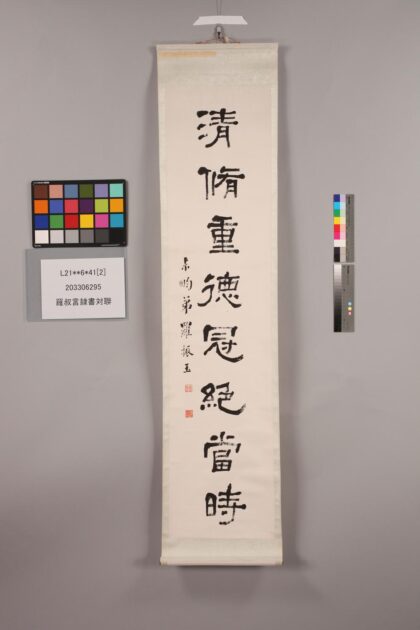 清脩重德冠絕當時
弟羅振玉
L21**6*41[2]
203306295
羅叔言隷書対聯